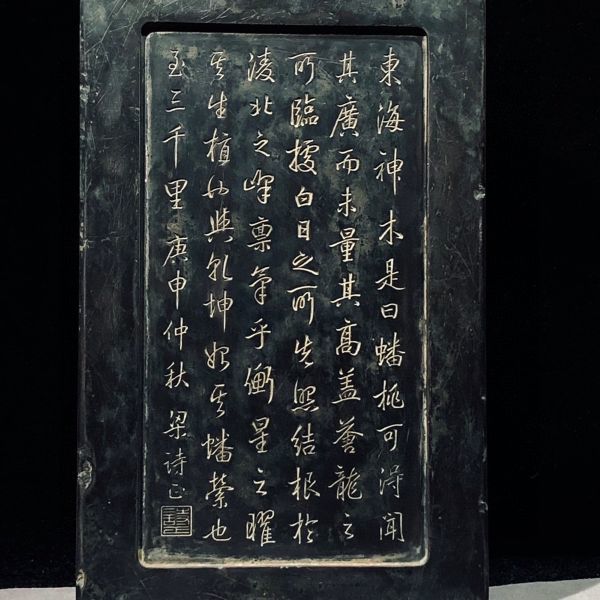 東海神木是曰蟠桃可得聞
其廣而未量其高蓋蒼龍之
所臨據白日之所先照結根於
淩北之峰稟氣乎衡星之曜
其生植也與乾坤始其蟠縈也
至三千里 庚申仲秋 梁詩正